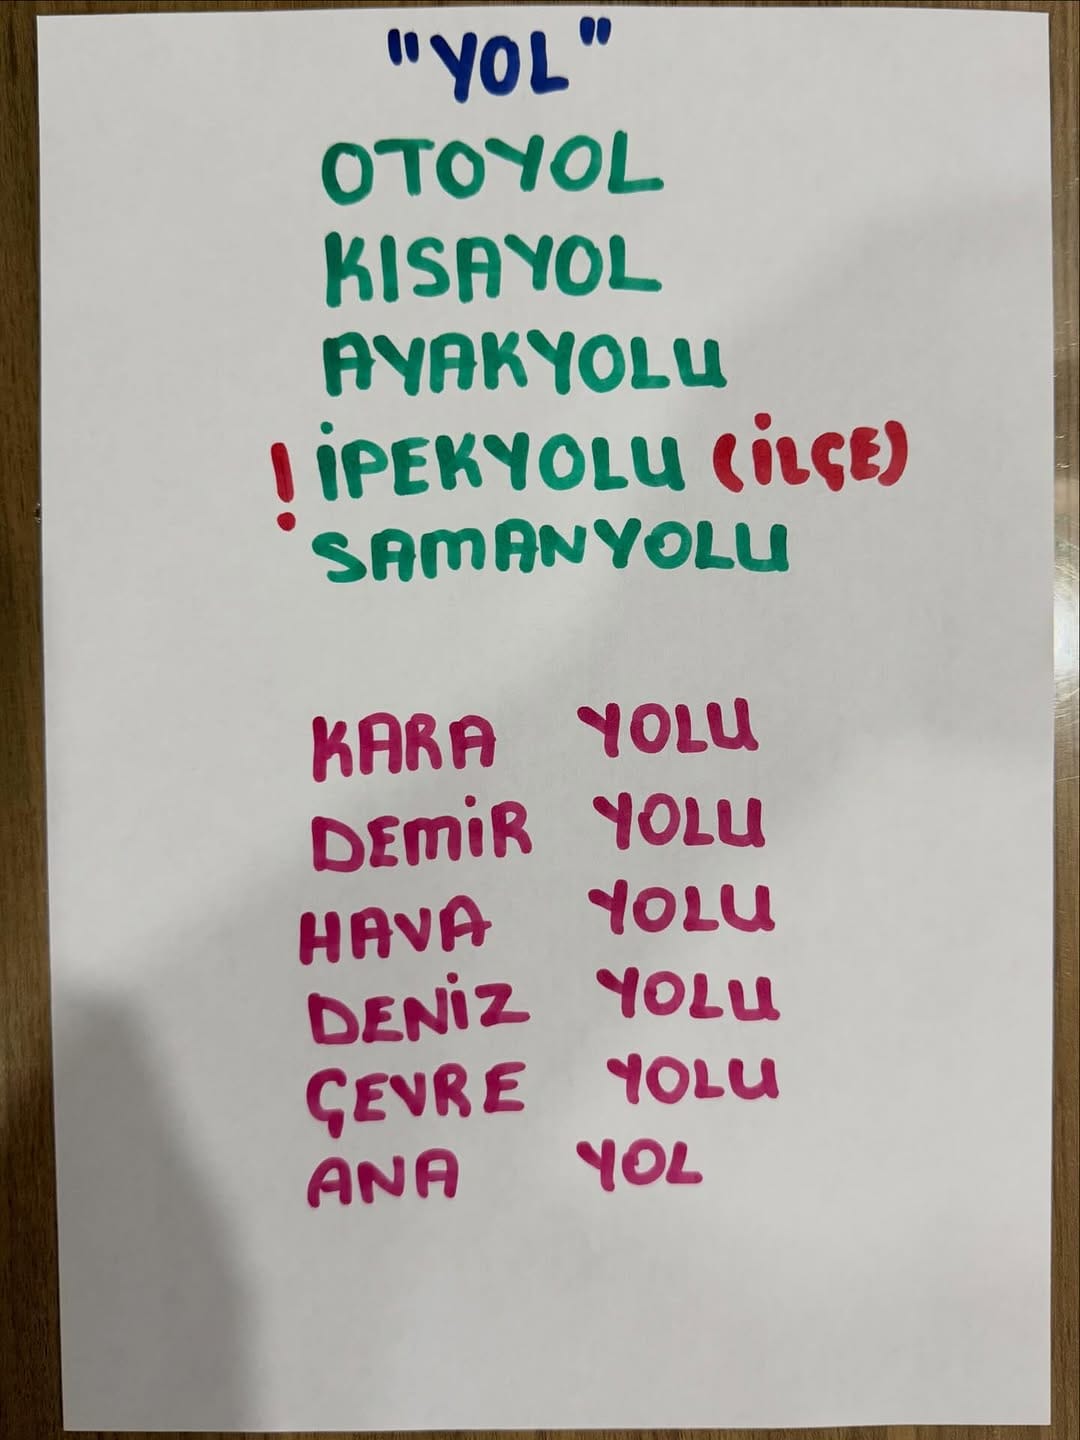 "YOL"
OTOYOL
KISAYOL
AYAKYOLU
! İPEKYOLU (İLÇE)
SAMANYOLU
KARA YOLU
DEMİR YOLU
HAVA YOLU
DENİZ YOLU
ÇEVRE YOLU
ANA YOL